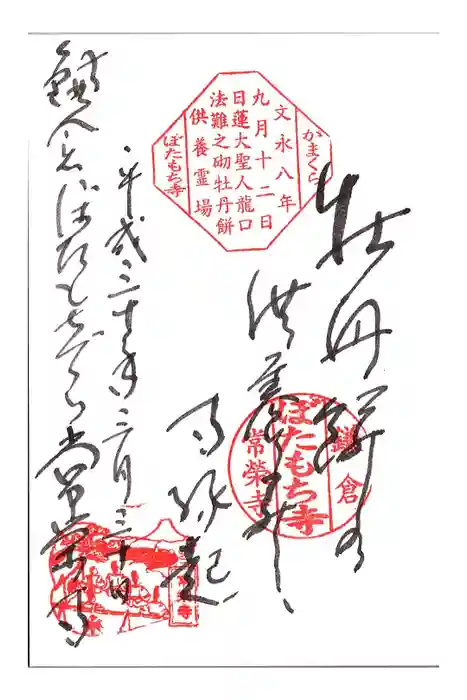 かまくら
文永八年
九月十二日
日蓮大聖人龍口
法難之砌牡丹餅
供養霊場
ぼたもち寺
牡丹餅の
供養
縁起
鎌倉
ぼたもち寺
常榮寺
平成三十年三月三十日
ぼたもちでら 常栄寺